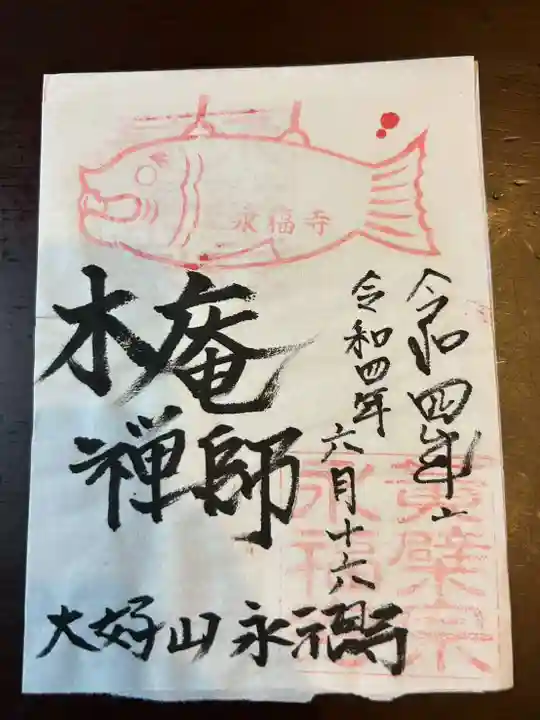 永福寺
令和四年六
令和四年
六月十六
木庵
禅師
大好山永福寺
黄檗宗
永福寺